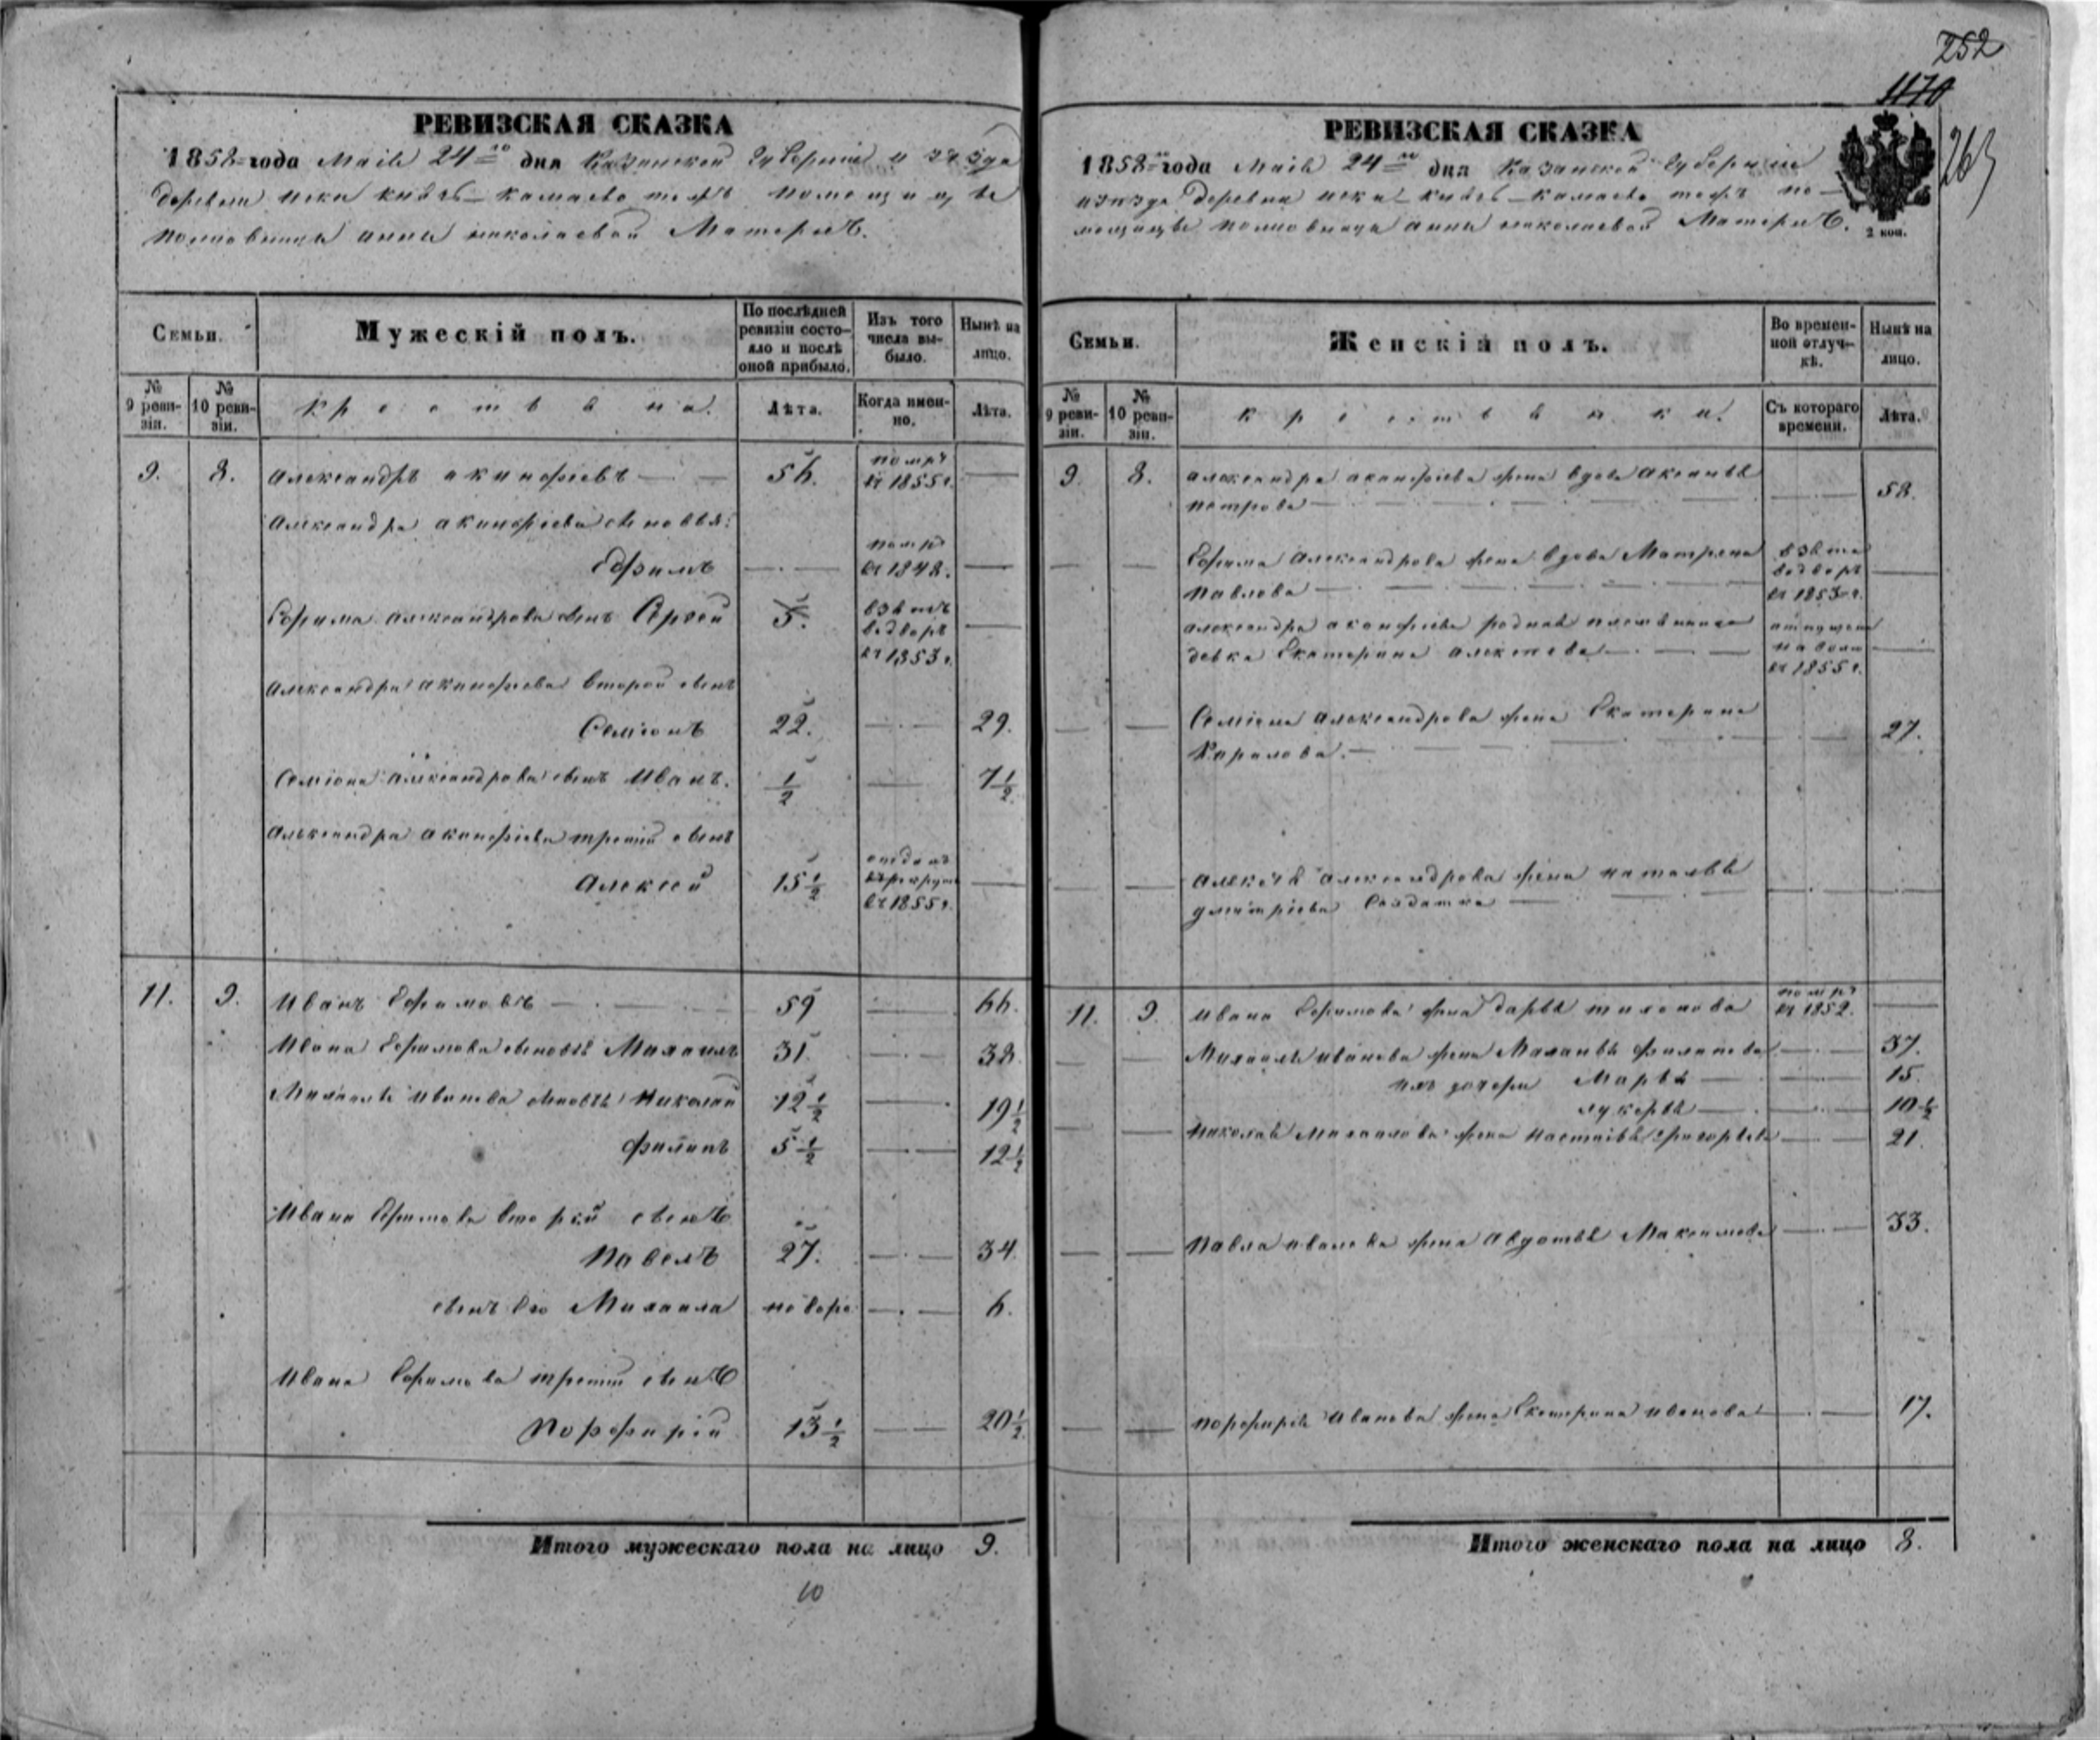 252
1170
263
РЕВИЗСКАЯ СКАЗКА
1858 года Маія 24го дня Казанской губерніи и уѣзда
деревни Иски князь-камаево тожъ помещицы
полковницы анны николаевой
Семьи.
Мужескій полъ.
По послѣдней ревизіи состояло и послѣ оной прибыло.
Изъ того числа выбыло.
Нынѣ на лицо.
№ 9 ревизіи.
№ 10 ревизіи.
крестьяна.
Лѣта.
Когда именно.
Лѣта.
9. 8. Александръ акинфіевъ 56. помръ въ 1855 г.
Александра акинфіева сыновья:
Ефимъ помръ въ 1848.
Ефима александрова сынъ Сергей 5. взятъ во дворъ въ 1853 г.
Александра акинфіева второй сынъ
Семіонъ 22. 29.
Семіона александрова сынъ Иванъ. 1/2 7 1/2
Александра акинфіева третій сынъ
Алексей 15 1/2 отданъ въ рекруты въ 1855 г.
11. 9. Иванъ Ефимовъ 59 66.
Ивана Ефимова сыновья Михаилъ 31. 38.
Михаила Иванова сыновья Николай 12 1/2 19 1/2
Филипъ 5 1/2 12 1/2
Ивана Ефимова второй сынъ
Павелъ 27. 34.
сынъ Его Михаила новоро 6.
Ивана Ефимова третій сынъ
Порфирій 13 1/2 20 1/2
Итого мужескаго пола на лицо 9.
10
РЕВИЗСКАЯ СКАЗКА
1858 года Маія 24го дня Казанской губерніи
и уѣзда деревни иски-князь-камаево тожъ по-
мещицы полковницы анны николаевой
2 коп.
Семьи.
Женскій полъ.
Во временной отлучкѣ.
Нынѣ на лицо.
№ 9 ревизіи.
№ 10 ревизіи.
крестьянки.
Съ котораго времени.
Лѣта.
9. 8. александра акинфіева жена вдова Аксинья
петрова 58.
Ефима Александрова жена вдова Матрена
Павлова взята во дворъ въ 1853 г.
александра акинфіева родная племянница
девка Екатерина алексеева отпущена на волю въ 1855 г.
Семіона александрова жена Екатерина
Карпова. 27.
алексея александрова жена наталья
дмитріева солдатка
11. 9. ивана Ефимова жена дарья тихонова помръ въ 1852.
Михаила иванова жена Маланья филипова 37.
ихъ дочери Марья 15.
лукерья 10 1/2
Николая Михаилова жена настасья григорьева 21.
Павла иванова жена авдотья Максимова 33.
порфирія Иванова жена Екатерина иванова 17.
Итого женскаго пола на лицо 8.